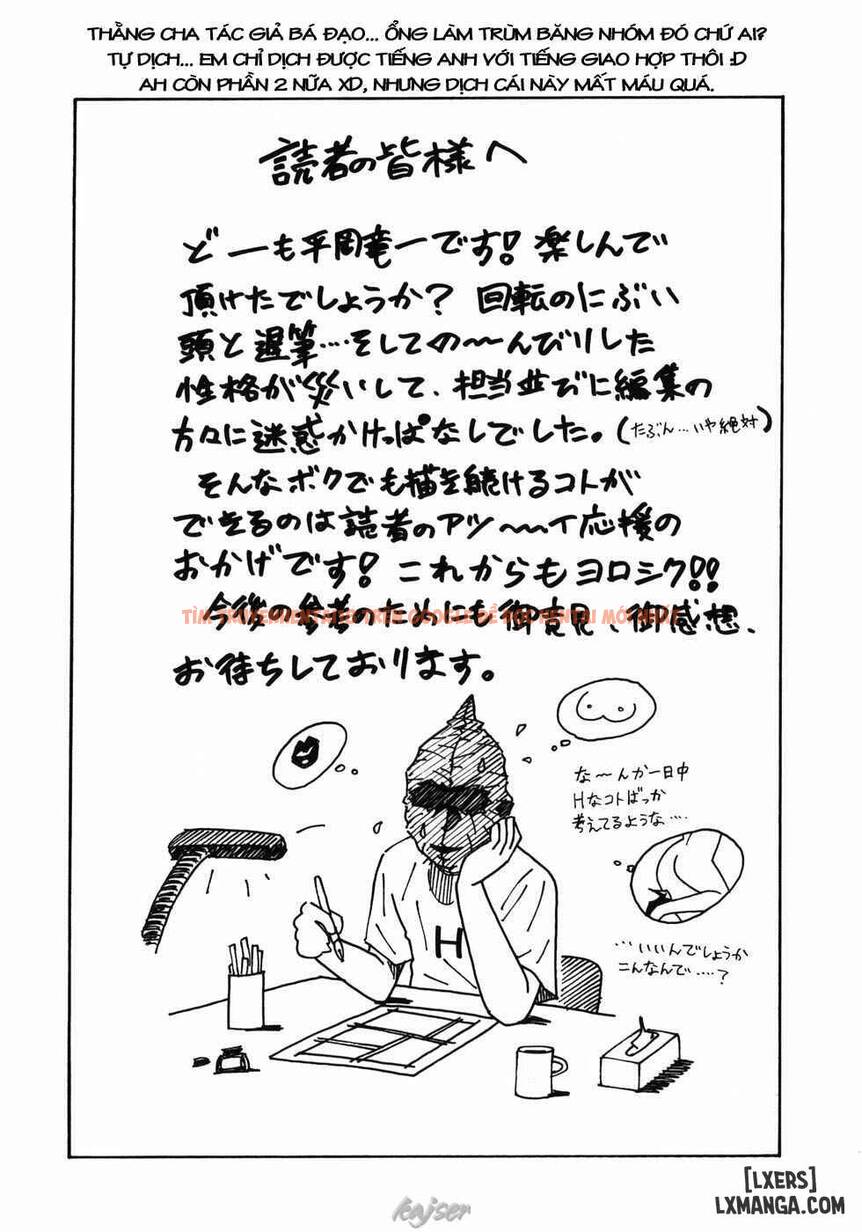 THẰNG CHA TÁC GIẢ BÁ ĐẠO... ỔNG LÀM TRÙM BĂNG NHÓM ĐÓ CHỨ AI?
TỰ DỊCH... EM CHỈ DỊCH ĐƯỢC TIẾNG ANH VỚI TIẾNG GIAO HỢP THÔI :D
AH CÒN PHẦN 2 NỮA XD, NHƯNG DỊCH CÁI NÀY MẤT MÁU QUÁ.
読者の皆様へ
ど―も平岡竜一です! 楽しんで
頂けたでしょうか? 回転のにぶい
頭と遅筆…そしての〜んびりした
性格が災いして、担当並びに編集の
方々に迷惑かけっぱなしでした。(たぶん…いや絶対)
そんなボクでも描き続けるコトが
できるのは読者のアツ〜〜イ応援の
おかげです! これからもヨロシク!!
今後の参考のためにも御意見、御感想、
お待ちしております。
な〜んか一日中
Hなコトばっか
考えてるような…
…いいんでしょうか
こんなんで…?
H
[LXERS]
LXMANGA.COM
kajser